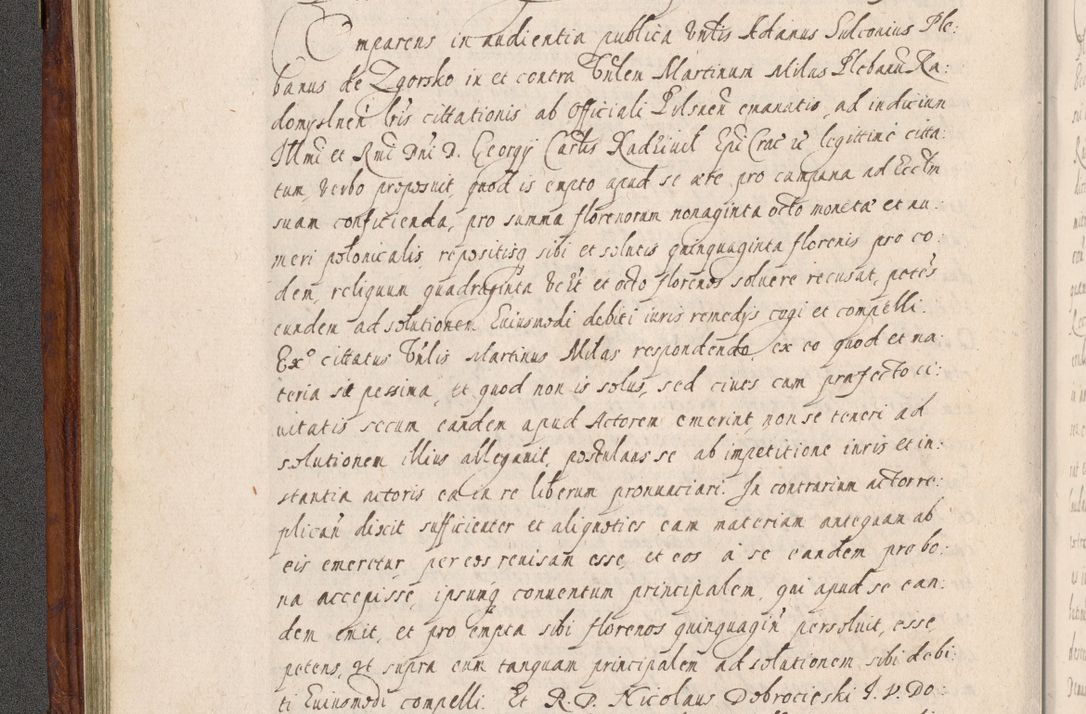 Comparens in audientia publica Vnłis Adamus Sulconius Ple:
banus de Zgorsko in et contra Vnłem Martinum Milas Plebanũ Ra:
domyslneñ lris cittationis ab Officiali Pilsneñ emanatio, ad indicium
Illmi et Rmi Dni D. Georgÿ Cardis Radziuil Epi Crac ic legittime citta:
tum, verbo proposuit, quod is empto apud se aere pro campana ad Ecctm
suam conficienda, pro summa florenorum nonaginta octo monetæ et nu:
meri polonicalis, repositisq sibi et solutis quinquaginta florenis pro eo:
dem, reliquum quadraginta velt et octo florenos soluere recusat, petes
eundem ad solutionem Euiusmodi debiti iuris remedys cogi et compelli.
Exo cittatus Vnłis Martinus Milas respondendo, ex eo quod et ma:
teria sit pessima, et quod non is solus, sed ciues cum præfecto ci:
uitatis secum eandem apud Actorem emerint, non se teneri ad
solutionem illius allegauit, postulans se ab impetitione iuris et in:
stantia actoris ea in re liberum pronunciari. In contrarium actor re:
plicań dixit sufficienter et aliquoties eam materiam antequam ab
eis emeretur, per eos reuisam esse, et eos a se eandem pro bo:
na accepisse, ipsumq conuentum principalem, qui apud se ean:
dem emit, et pro empta sibi florenos quinquagiń persoluit, esse,
petens, vt supra eum tanquam principalem ad solutionem sibi debi:
ti Euiusmodi compelli. Et R. D. Nicolaus Dobrocieski I. V. Do: